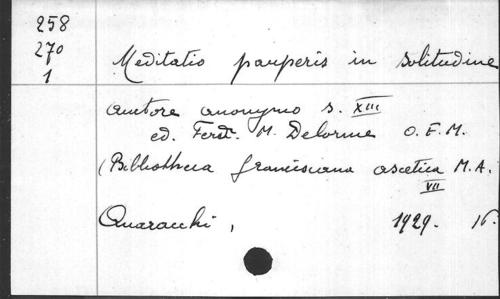 258
270
1
Meditatio pauperis in solitudine
auctore anonymo s. XIII
ed. Ferd. M. Delorme O.F.M.
(Bibliotheca franciscana ascetica M.A.
VII
Quaracchi, 1929. 16.